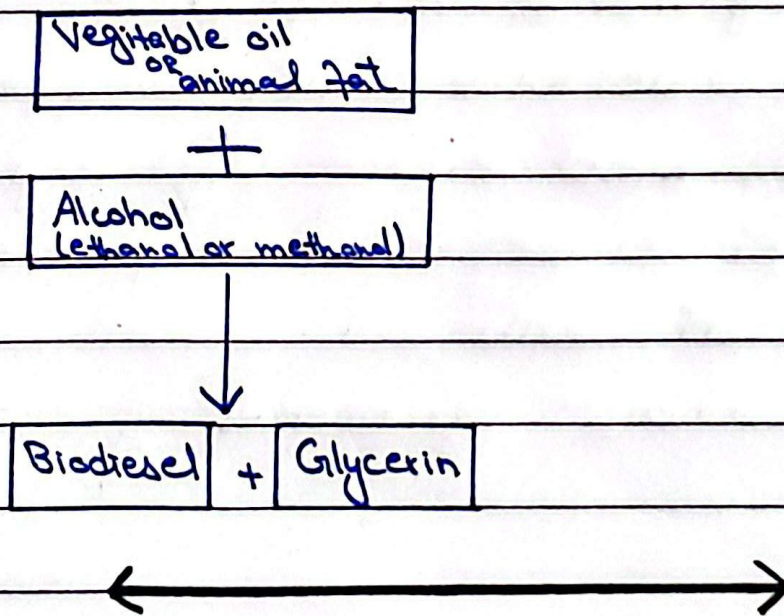 Vegitable oil
or
animal fat
+
Alcohol
(ethanol or methanol)
Biodiesel + Glycerin